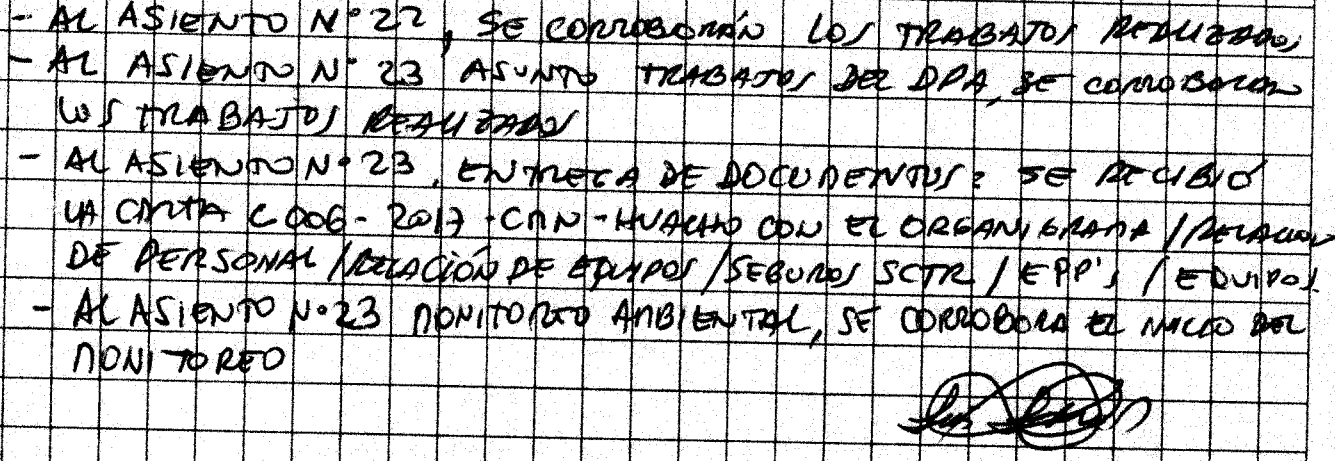 - AL ASIENTO N° 22, SE CORROBORÁN LOS TRABAJOS REALIZADOS
- AL ASIENTO N° 23 ASUNTO TRABAJOS DEL DPA, SE CORROBORAN
LOS TRABAJOS REALIZADOS
- AL ASIENTO N° 23, ENTREGA DE DOCUMENTOS: SE RECIBIÓ
LA CARTA C006-2017-CMN-HUACHO CON EL ORGANIGRAMA / RELACION
DE PERSONAL / RELACIÓN DE EQUIPOS / SEGUROS SCTR / EPP'S / EQUIPOS.
- AL ASIENTO N° 23 MONITOREO AMBIENTAL, SE CORROBORA EL INICIO DEL
MONITOREO